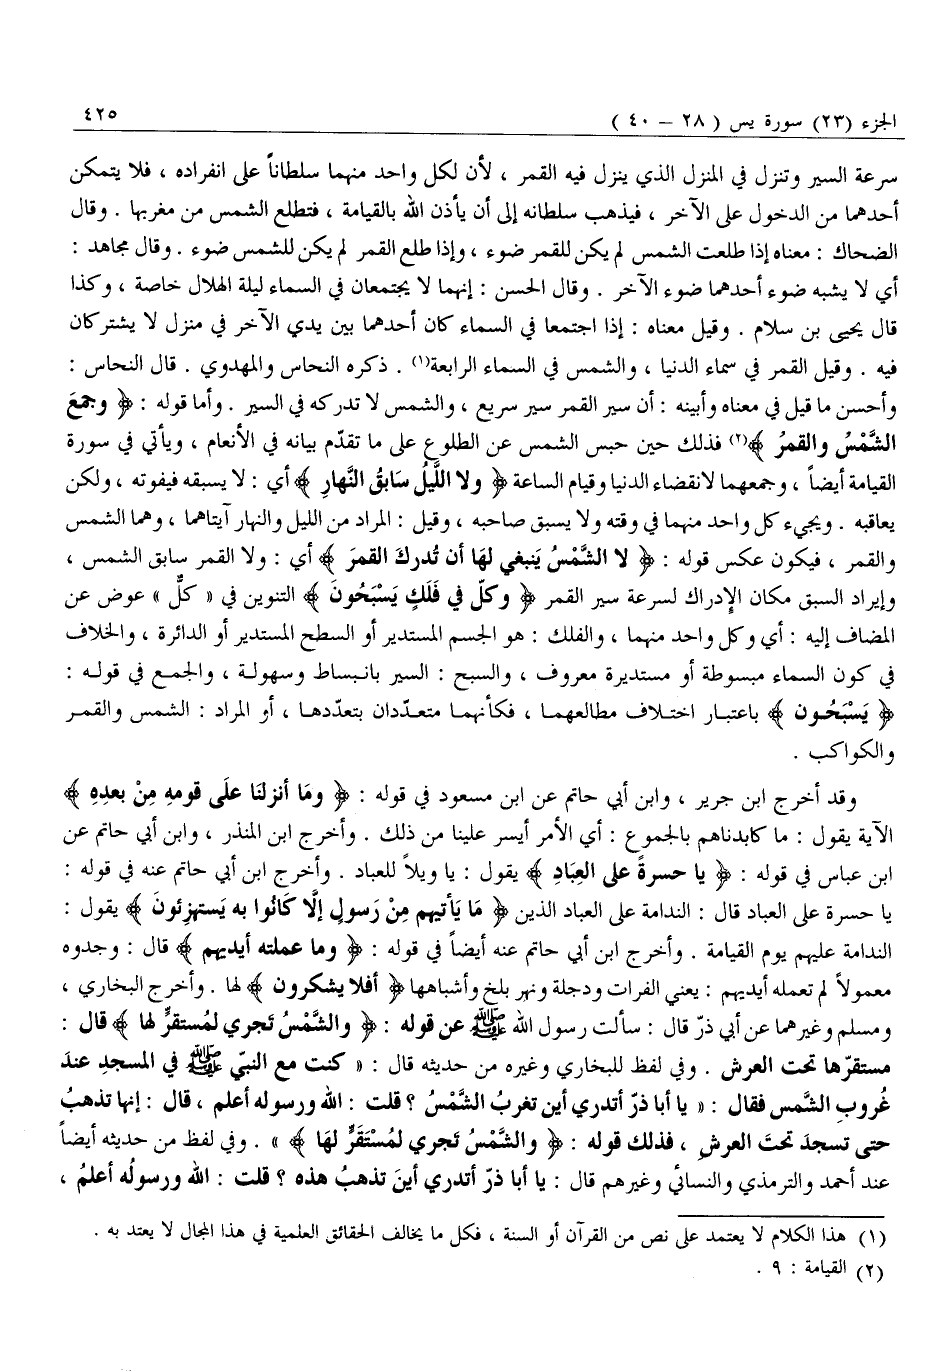 الجزء (٢٣) سورة يس ( ٢٨ – ٤٠ ) ٤٢٥
سرعة السير وتنزل في المنزل الذي ينزل فيه القمر ، لأن لكل واحد منهما سلطاناً على انفراده ، فلا يتمكن
أحدهما من الدخول على الآخر ، فيذهب سلطانه إلى أن يأذن الله بالقيامة ، فتطلع الشمس من مغربها . وقال
الضحاك : معناه إذا طلعت الشمس لم يكن للقمر ضوء ، وإذا طلع القمر لم يكن للشمس ضوء . وقال مجاهد :
أي لا يشبه ضوء أحدهما ضوء الآخر . وقال الحسن : إنهما لا يجتمعان في السماء ليلة الهلال خاصة ، وكذا
قال يحيى بن سلام . وقيل معناه : إذا اجتمعا في السماء كان أحدهما بين يدي الآخر في منزل لا يشتركان
فيه . وقيل القمر في سماء الدنيا ، والشمس في السماء الرابعة(١) . ذكره النحاس والمهدوي . قال النحاس :
وأحسن ما قيل في معناه وأبينه : أن سير القمر سير سريع ، والشمس لا تدركه في السير . وأما قوله : ﴿ وجمعَ
الشَّمْسُ والقمرُ ﴾(٢) فذلك حين حبس الشمس عن الطلوع على ما تقدّم بيانه في الأنعام ، ويأتي في سورة
القيامة أيضاً ، وجمعهما لانقضاء الدنيا وقيام الساعة ﴿ ولا اللَّيلُ سَابقُ النَّهارِ ﴾ أي : لا يسبقه فيفوته ، ولكن
يعاقبه . ويجيء كل واحد منهما في وقته ولا يسبق صاحبه ، وقيل : المراد من الليل والنهار آيتاهما ، وهما الشمس
والقمر ، فيكون عكس قوله : ﴿ لا الشَّمْسُ يَنبغي لهَا أن تُدركَ القمرَ ﴾ أي : ولا القمر سابق الشمس ،
وإيراد السبق مكان الإدراك لسرعة سير القمر ﴿ وكلّ في فَلَكٍ يَسْبَحُونَ ﴾ التنوين في « كلٌّ » عوض عن
المضاف إليه : أي وكل واحد منهما ، والفلك : هو الجسم المستدير أو السطح المستدير أو الدائرة ، والخلاف
في كون السماء مبسوطة أو مستديرة معروف ، والسبح : السير بانبساط وسهولة ، والجمع في قوله :
﴿ يَسْبَحُون ﴾ باعتبار اختلاف مطالعهما ، فكأنهما متعدّدان بتعدّدها ، أو المراد : الشمس والقمر
والكواكب .
وقد أخرج ابن جرير ، وابن أبي حاتم عن ابن مسعود في قوله : ﴿ ومَا أنزلنَا علَى قومهِ مِنْ بعدِهِ ﴾
الآية يقول : ما كابدناهم بالجموع : أي الأمر أيسر علينا من ذلك . وأخرج ابن المنذر ، وابن أبي حاتم عن
ابن عباس في قوله : ﴿ يا حسرةً على العِبَادِ ﴾ يقول : يا ويلاً للعباد . وأخرج ابن أبي حاتم عنه في قوله :
يا حسرة على العباد قال : الندامة على العباد الذين ﴿ مَا يَأتيهم مِنْ رَسولٍ إلَّا كَانُوا به يَستهزئونَ ﴾ يقول :
الندامة عليهم يوم القيامة . وأخرج ابن أبي حاتم عنه أيضاً في قوله : ﴿ وما عملته أيديهم ﴾ قال : وجدوه
معمولاً لم تعمله أيديهم : يعني الفرات ودجلة ونهر بلخ وأشباهها ﴿ أفلا يشكرون ﴾ لها . وأخرج البخاري ،
ومسلم وغيرهما عن أبي ذرّ قال : سألت رسول الله ﷺ عن قوله : ﴿ والشَّمْسُ تَجري لمُستقرٍّ لها ﴾ قال :
مستقرّها تحت العرش . وفي لفظ للبخاري وغيره من حديثه قال : « كنت مع النبيّ ﷺ في المسجدِ عندَ
غُروبِ الشَّمس فقال : « يا أبا ذرّ أتدري أين تغربُ الشَّمْسُ ؟ قلت : الله ورسوله أعلم ، قال : إنها تذهبُ
حتى تسجدَ تحتَ العرشِ ، فذلك قوله : ﴿ والشَّمْسُ تَجري لمُسْتَقَرٍّ لهَا ﴾ » . وفي لفظ من حديثه أيضاً
عند أحمد والترمذي والنسائي وغيرهم قال : يا أبا ذرّ أتدري أينَ تذهبُ هذه ؟ قلت : الله ورسولُه أعلمُ ،
(١) هذا الكلام لا يعتمد على نص من القرآن أو السنة ، فكل ما يخالف الحقائق العلمية في هذا المجال لا يعتد به .
(٢) القيامة : ٩ .